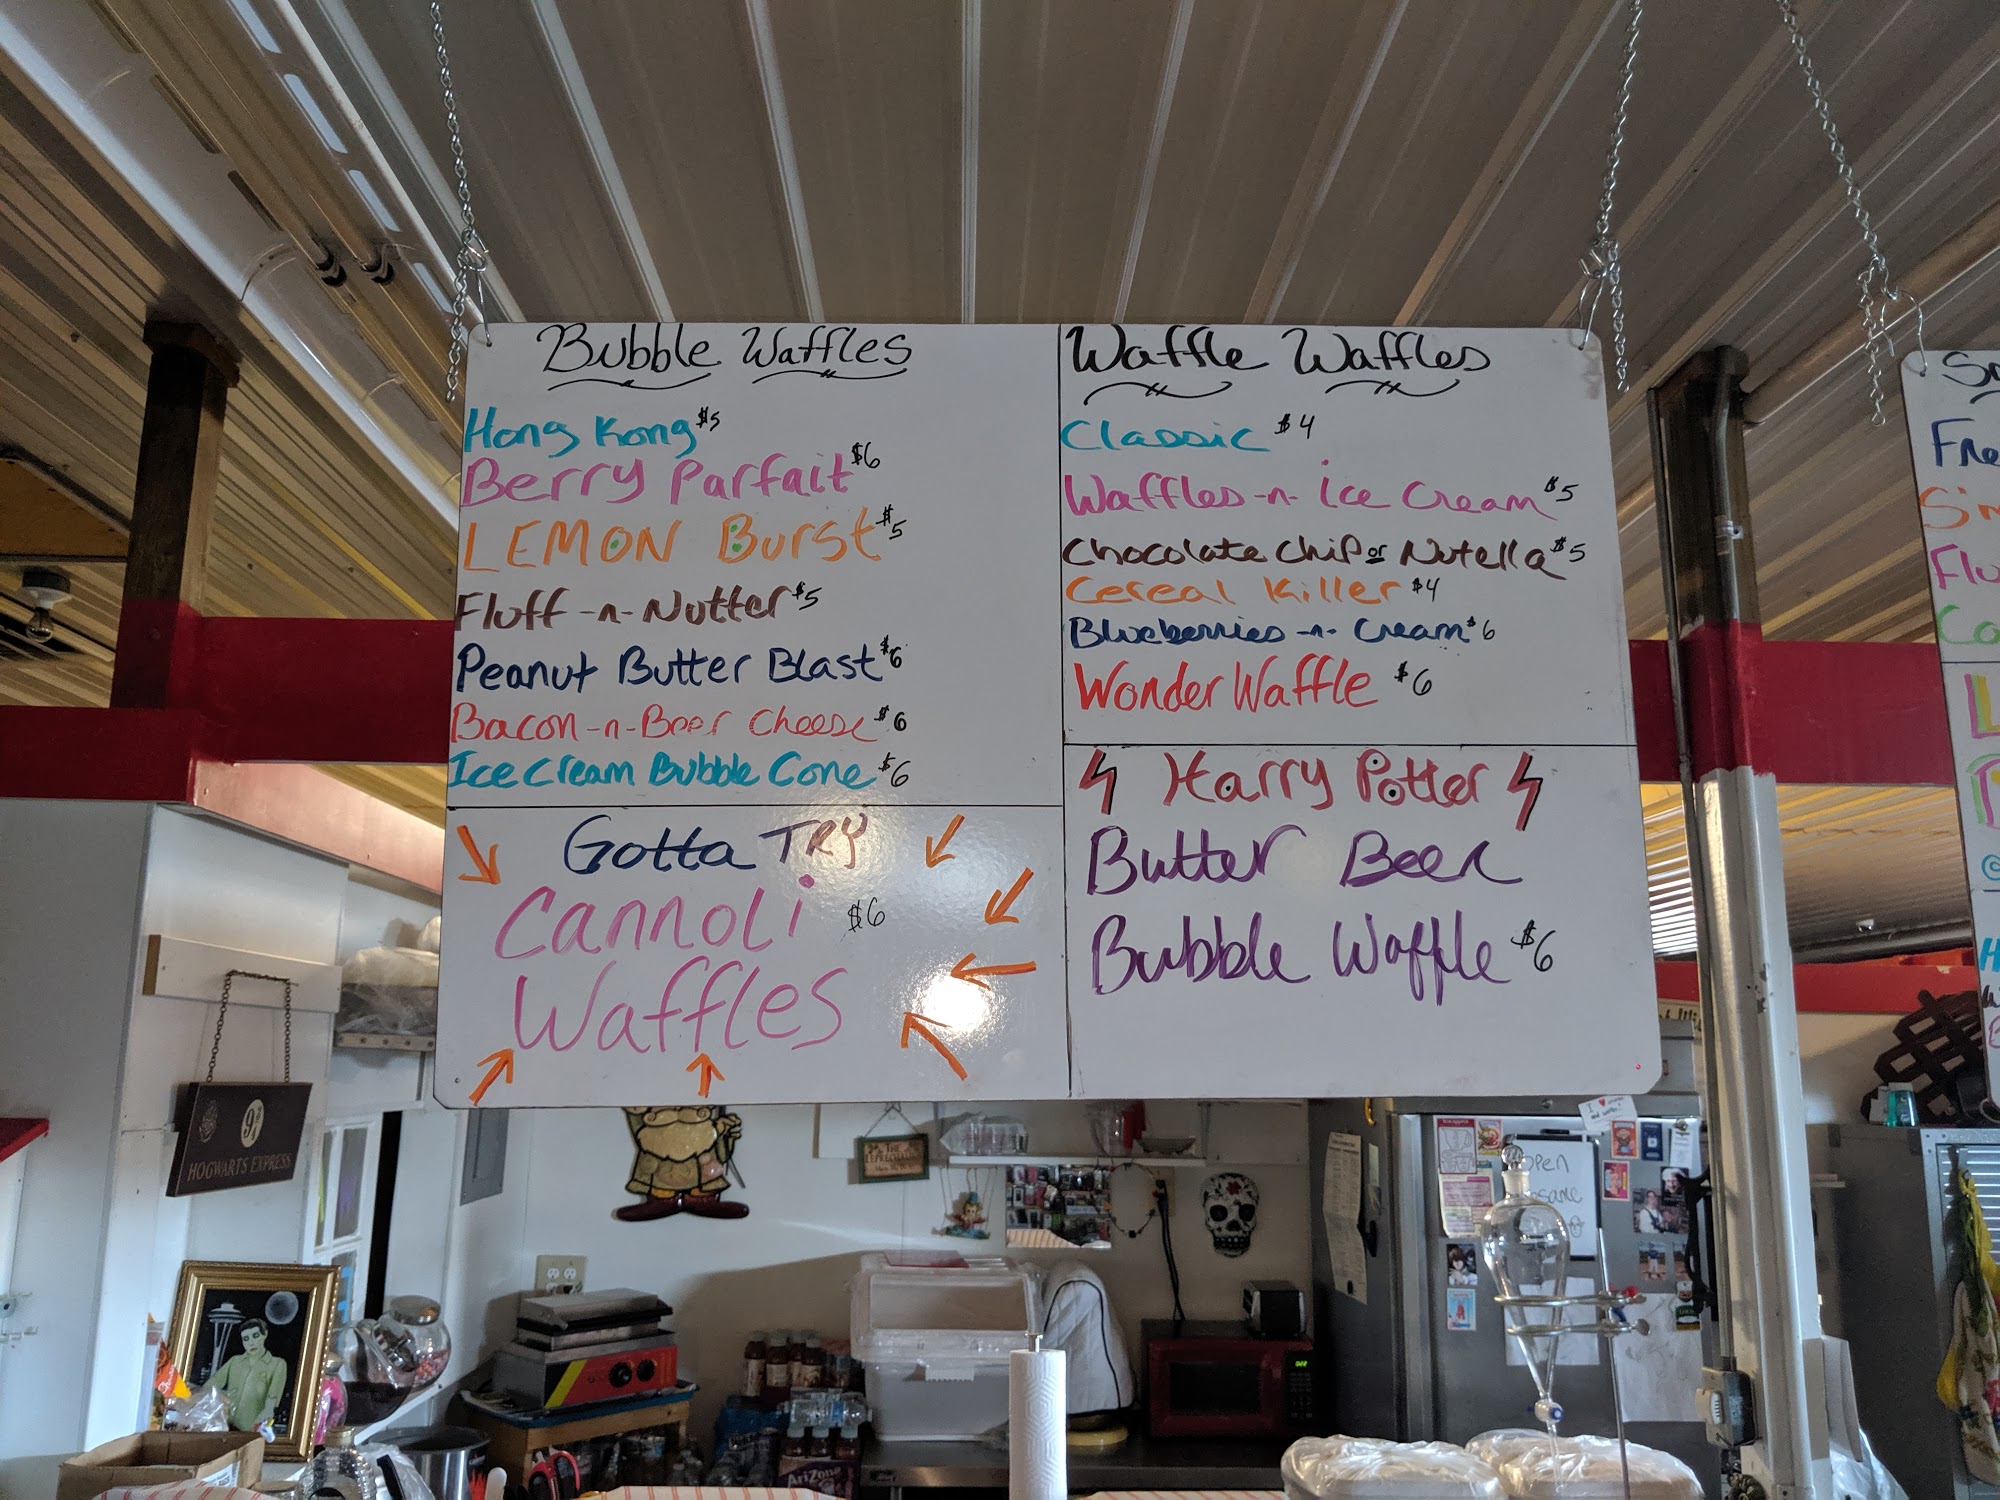 Bubble Waffles
Hong Kong $5
Berry Parfait $6
LEMON Burst $5
Fluff-n-Nutter $5
Peanut Butter Blast $6
Bacon-n-Beer Cheese $6
Ice Cream Bubble Cone $6
Gotta TRY
Cannoli $6
Waffles
Waffle Waffles
Classic $4
Waffles-n-Ice Cream $5
Chocolate Chip or Nutella $5
Cereal Killer $4
Blueberries-n-Cream $6
Wonder Waffle $6
Harry Potter
Butter Beer
Bubble Waffle $6
9 3/4
HOGWARTS EXPRESS
THE
LEPRECHAUN
AriZona